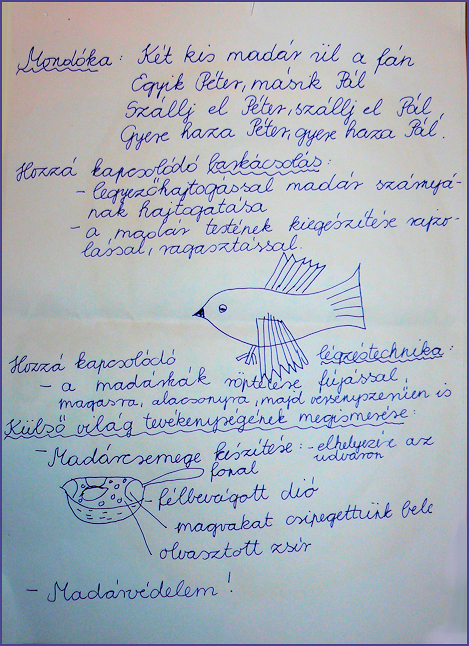 Mondóka: Két kis madár ül a fán
Egyik Péter, másik Pál
Szállj el Péter, szállj el Pál
Gyere haza Péter, gyere haza Pál.
Hozzá kapcsolódó barkácsolás:
- legyezőhajtogással madár szárnyá-
nak hajtogatása
- a madár testének kiegészítése rajzo-
lással, ragasztással.
Hozzá kapcsolódó légzéstechnika:
- a madárkák röptetése fújással
magasra, alacsonyra, majd versenyszerűen is
Külső világ tevékenységének megismerése:
- Madárcsemege készítése: - elhelyezése az
udvaron
fonal
félbevágott dió
magvakat csipegettünk bele
olvasztott zsír
- Madárvédelem!